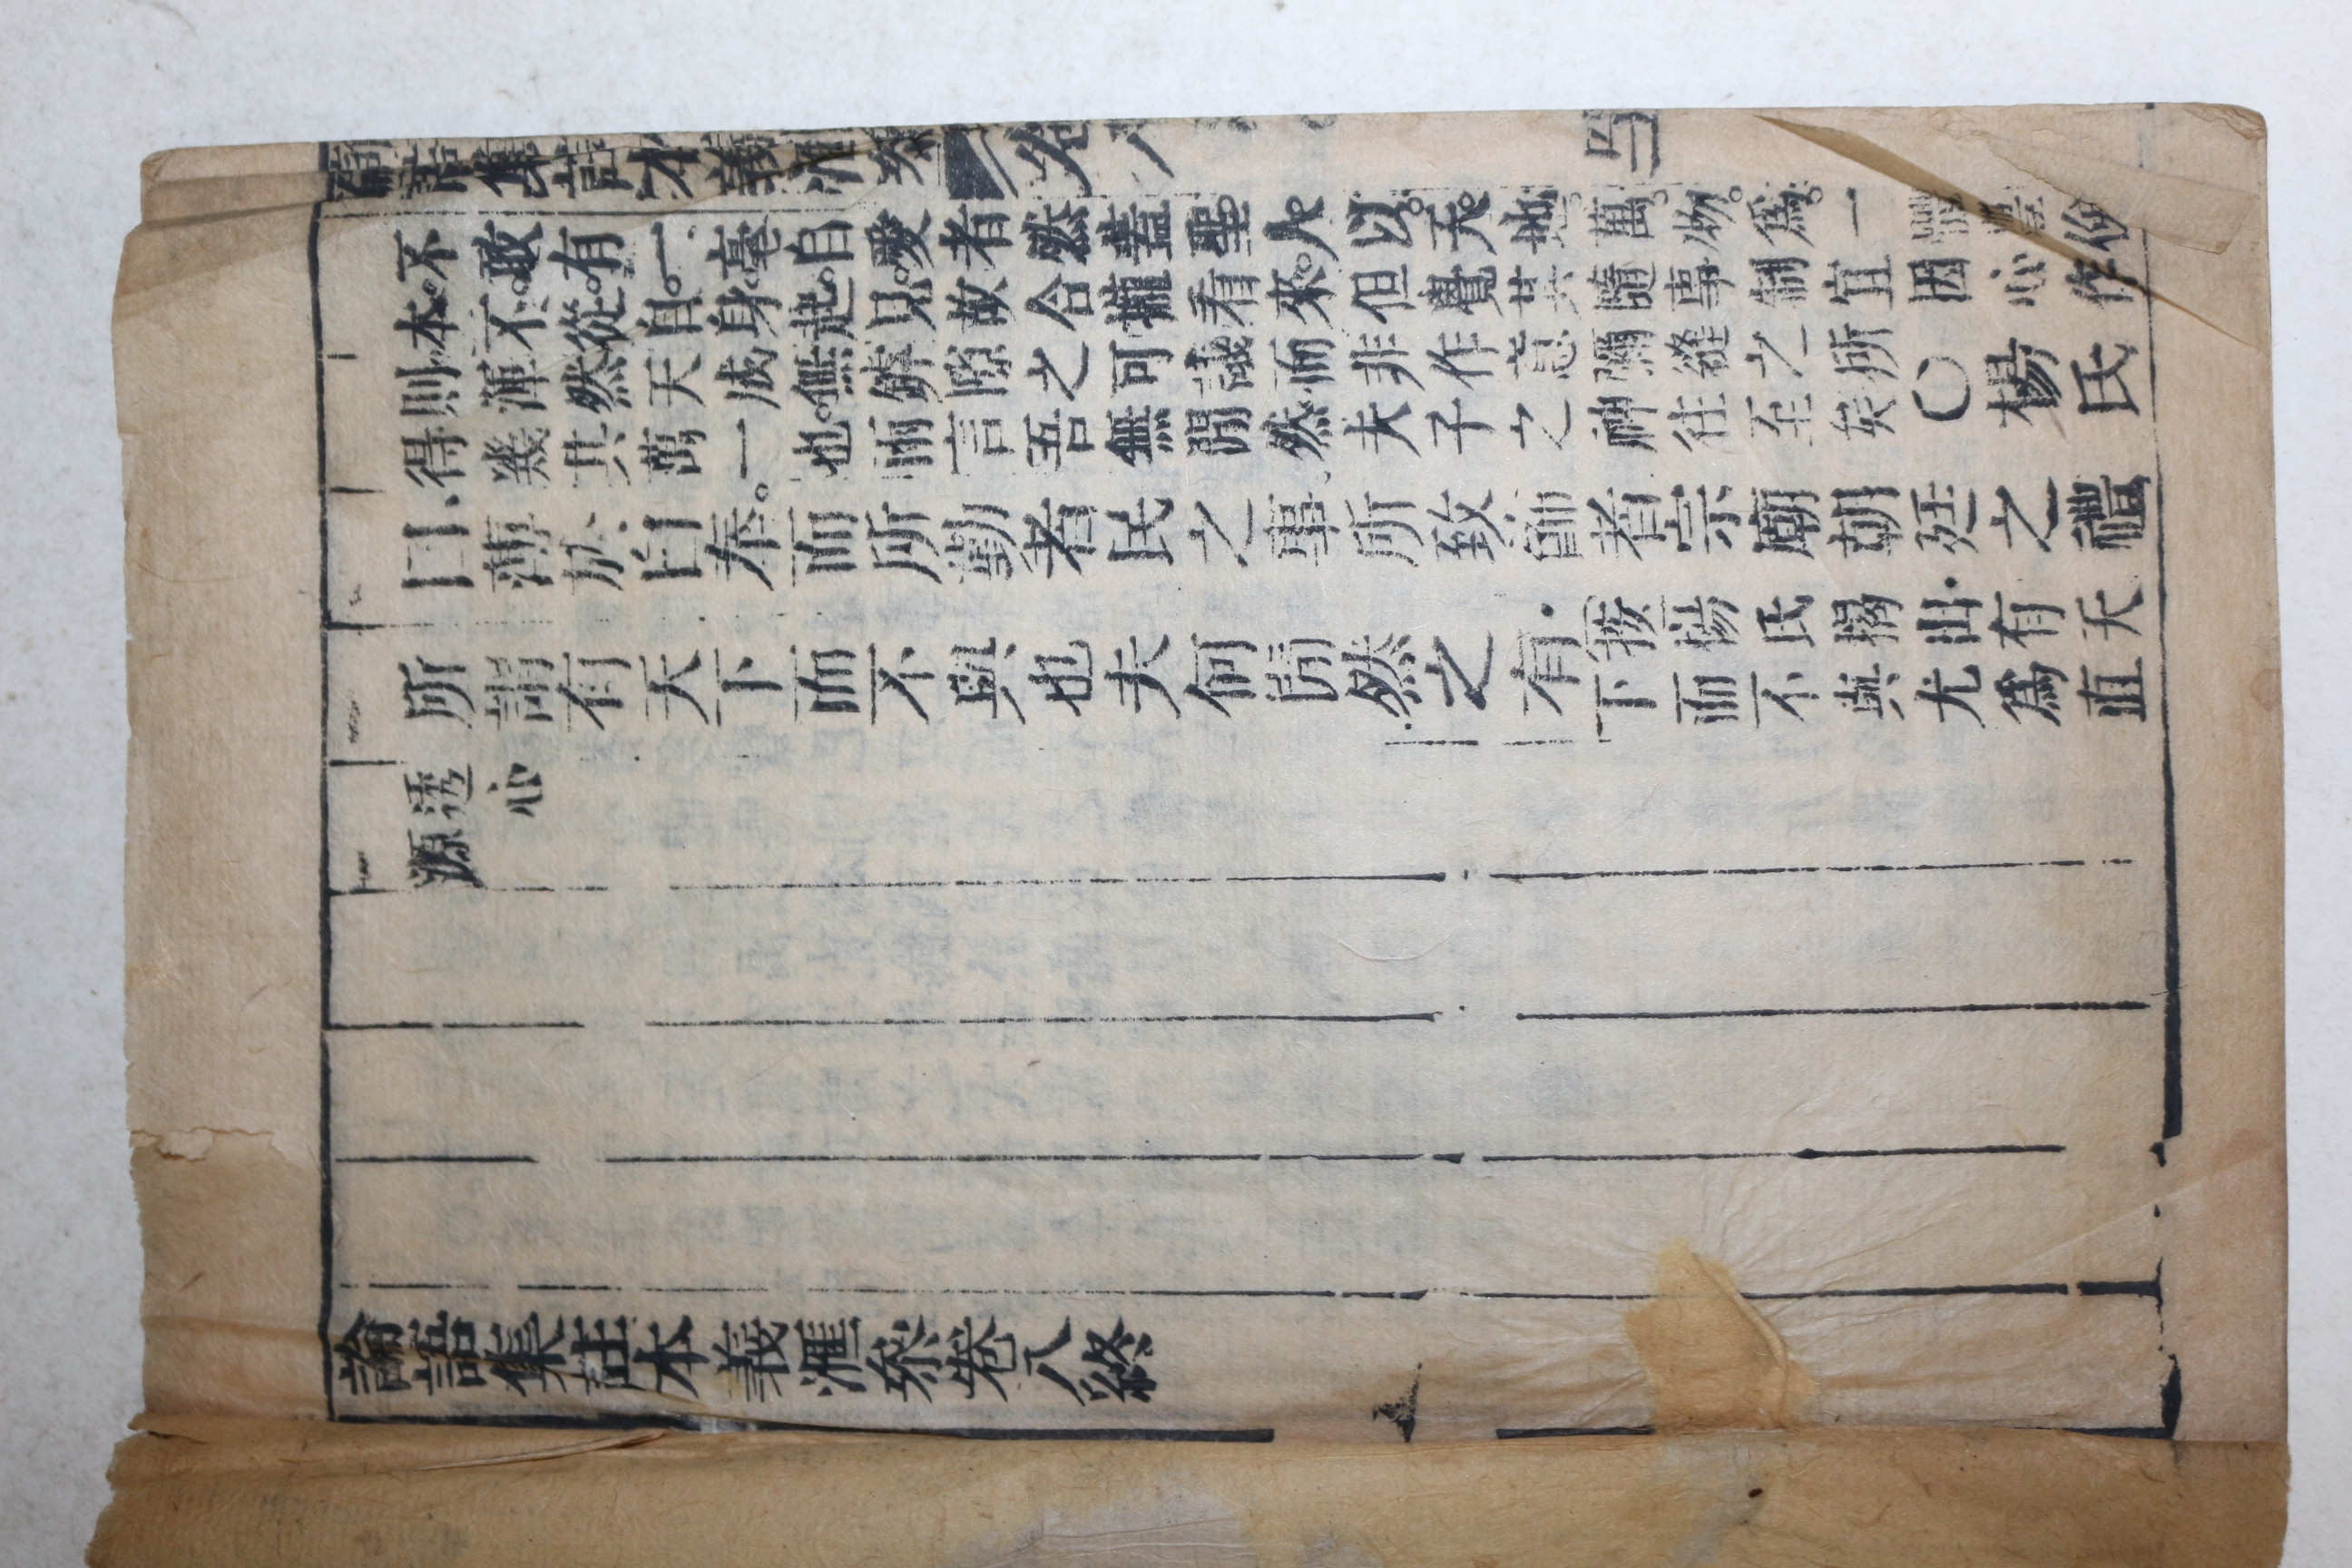 論語集註本義滙參 卷八
不敢有一毫自愛者然蓋聖人以天地萬物爲一體豐儉
本不從自身起見故合攏看來但覺其隨事制宜因心作
則渾然天成無罅隙之可議而非作意彌縫之所
得幾其萬一也兩言吾無閒然夫子之神往至矣
〇楊氏
曰薄於自奉而所勤者民之事所致飾者宗廟朝廷之禮
所謂有天下而不與也夫何閒然之有
按楊氏揭出有天
下而不與尤爲直
透心
源
論語集註本義滙參卷八終